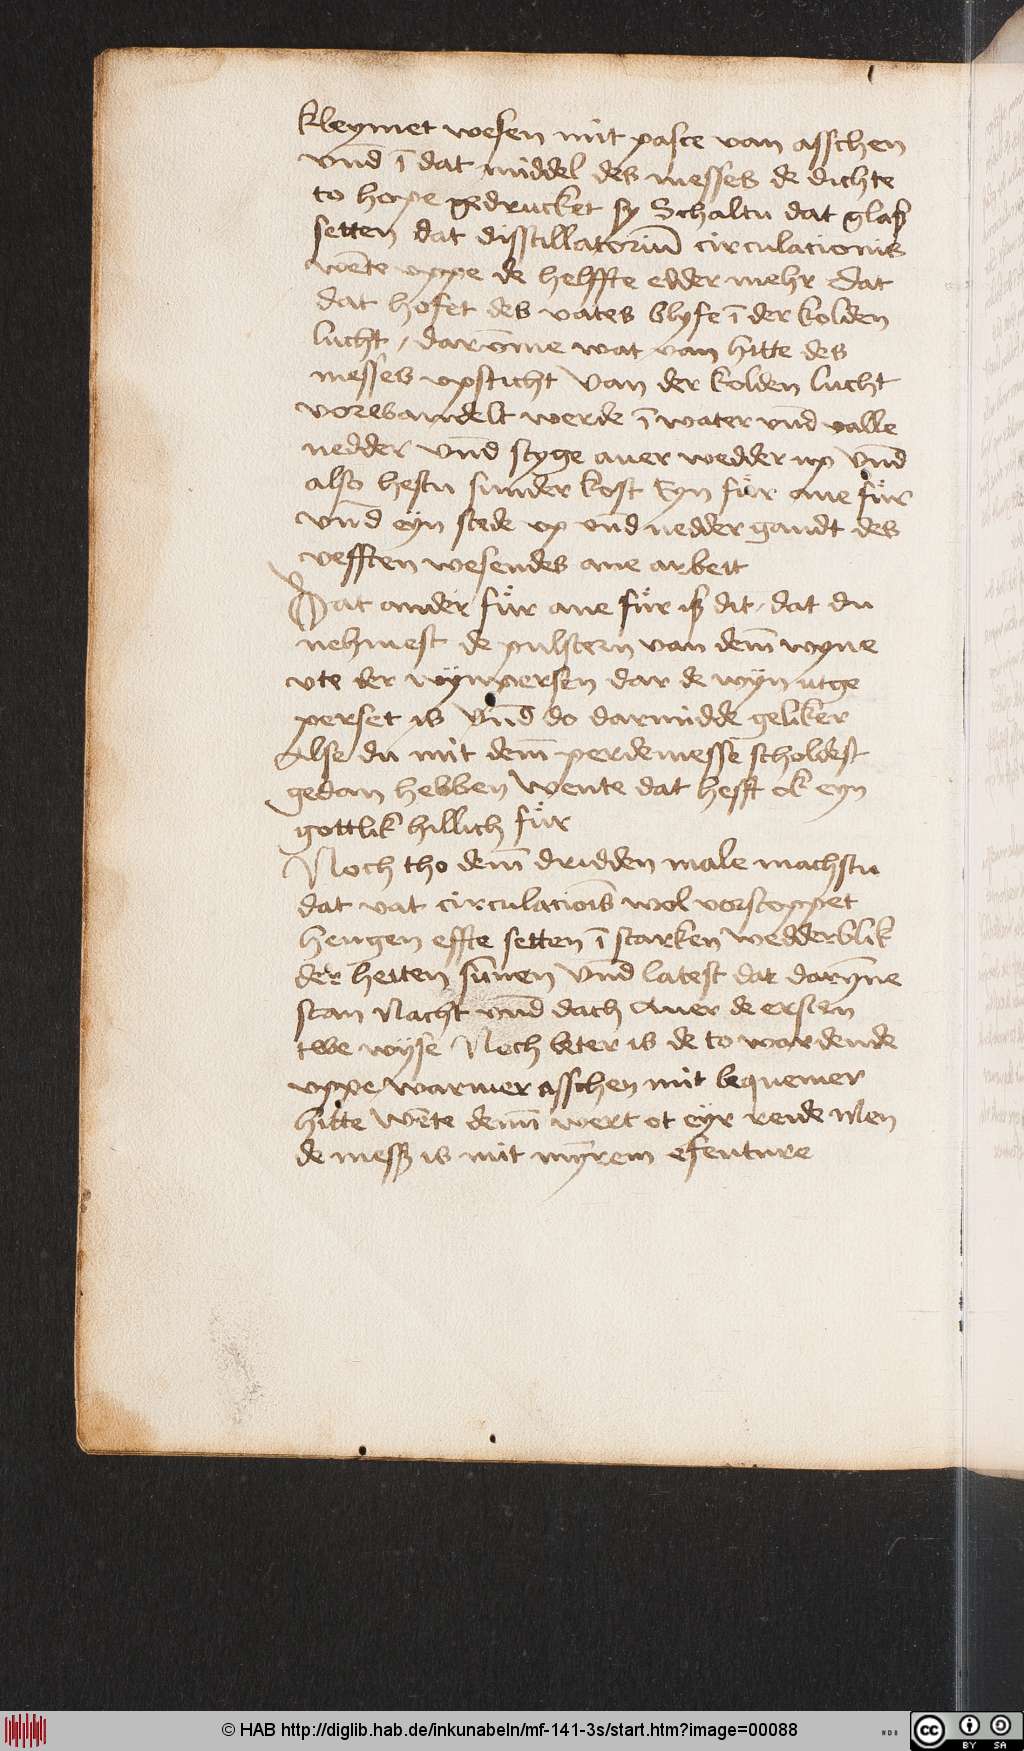 kleymet wesen mit pasce van asschen
vnd̄ ī dat middel des messes de dichte
to hope gedrucket sy Schaltu dat glaß
setten dat disstillatoriū circulacionis
wēte vppe de helffte edder mehr dat
dat hofet des vates blyfe ī der kolden
lucht / darōme wat van hitte des
messes vpsticht van der kolden lucht
vorwandelt werde ī water vnd̄ valle
nedder vnd̄ styge auer wedder up vnd̄
also hestu sunder kost Eyn fuͤr ane fuͤr
vnd̄ eÿn stede vp vnd̄ nedder gandt des
vefften wesendes ane arbeit
Dat ander fuͤr ane fuͤr iß dit / dat du
nehmest de pulstern van dem̄ wyne
vte der wÿnpersen dar de wÿn utge
perset is vnd̄ do darmidde geliker
Alse du mit dem̄ perdemesse scholdest
gedan hebben wente dat hefft ok eyn
gottlik hillich fuͤr
Noch tho dem̄ dridden male machstu
dat vat circulaciōis wol vorstoppet
hengen effte setten ī starken wedderblik
der heiten sūnen vnd̄ latest dat darȳne
stan Nacht vnd̄ dach Auer de ersten
twe wÿse Noch beter is de to wardende
vppe warmer asschen mit bequemer
hitte wēte dem̄ wert ot eÿr reide Men
de meß is mit mÿrem efenture
© HAB http://diglib.hab.de/inkunabeln/mf-141-3s/start.htm?image=00088
cc BY SA